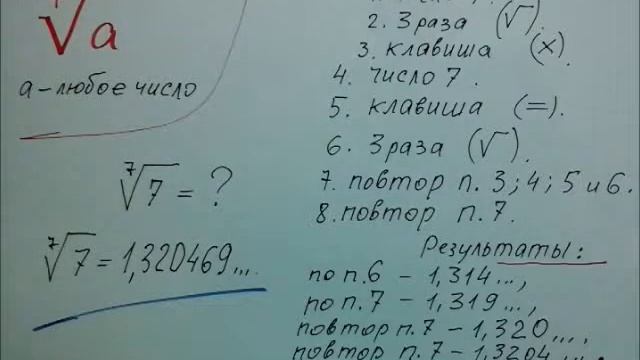 √a
a – любое число
⁷√7 = ?
⁷√7 = 1,320469...
2. 3 раза (√).
3. клавиша (×).
4. число 7.
5. клавиша (=).
6. 3 раза (√).
7. повтор п. 3; 4; 5 и 6.
8. повтор п. 7.
Результаты:
по п.6 – 1,314...,
по п.7 – 1,319...,
повтор п.7 – 1,320...,
повтор п.7 – 1,3204...